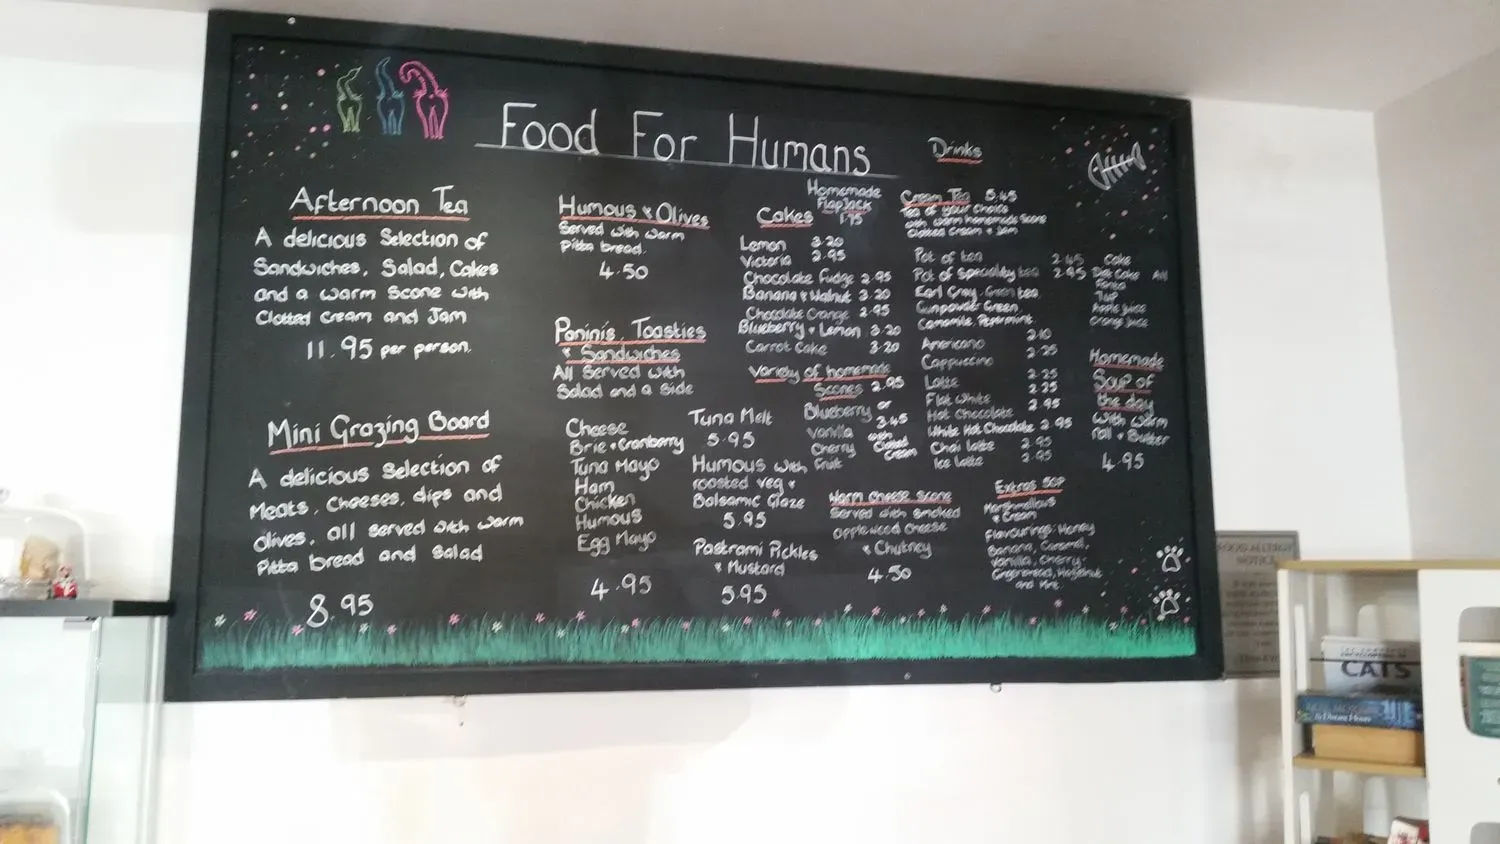 Food For Humans
Afternoon Tea
A delicious Selection of
Sandwiches, Salad, Cakes
and a warm Scone with
Clotted Cream and Jam
11.95 per person.
Mini Grazing Board
A delicious Selection of
Meats, Cheeses, dips and
Olives, all served with warm
Pitta bread and Salad
8.95
Humous & Olives
Served with warm
Pitta bread.
4.50
Paninis, Toasties
& Sandwiches
All Served with
Salad and a Side
Cheese
Brie & Cranberry
Tuna Mayo
Ham
Chicken
Humous
Egg Mayo
4.95
Tuna Melt
5.95
Humous with
roasted veg &
Balsamic Glaze
5.95
Pastrami Pickles
& Mustard
5.95
Homemade
Flapjack
1.75
Cakes
Lemon 3.20
Victoria 2.95
Chocolate Fudge 2.95
Banana & Walnut 3.20
Chocolate Orange 2.95
Blueberry & Lemon 3.20
Carrot Cake 3.20
Variety of homemade
Scones 2.95
Blueberry or
Vanilla 3.45
Cherry with
Fruit Clotted
Cream
Warm Cheese Scone
Served with Smoked
applewood cheese
& Chutney
4.50
Drinks
Cream Tea 5.45
Tea of your choice
with warm homemade Scone
Clotted Cream & Jam
Pot of tea 2.45
Pot of Speciality tea 2.95
Earl Grey, Green tea
Gunpowder Green
Camomile, Peppermint
Americano 2.10
Cappuccino 2.25
Latte 2.25
Flat White 2.25
Hot Chocolate 2.95
White Hot Chocolate 2.95
Chai latte 2.95
Ice latte 2.95
Extras 50P
Marshmallows
& Cream
Flavourings: Honey
Banana, Caramel,
Vanilla, Cherry,
Gingerbread, Hazelnut
and Mint
Coke
Diet Coke All
Fanta
7up
Apple Juice
Orange Juice
Homemade
Soup of
the day
With warm
roll & Butter
4.95
FOOD ALLERGY
NOTICE
CATS